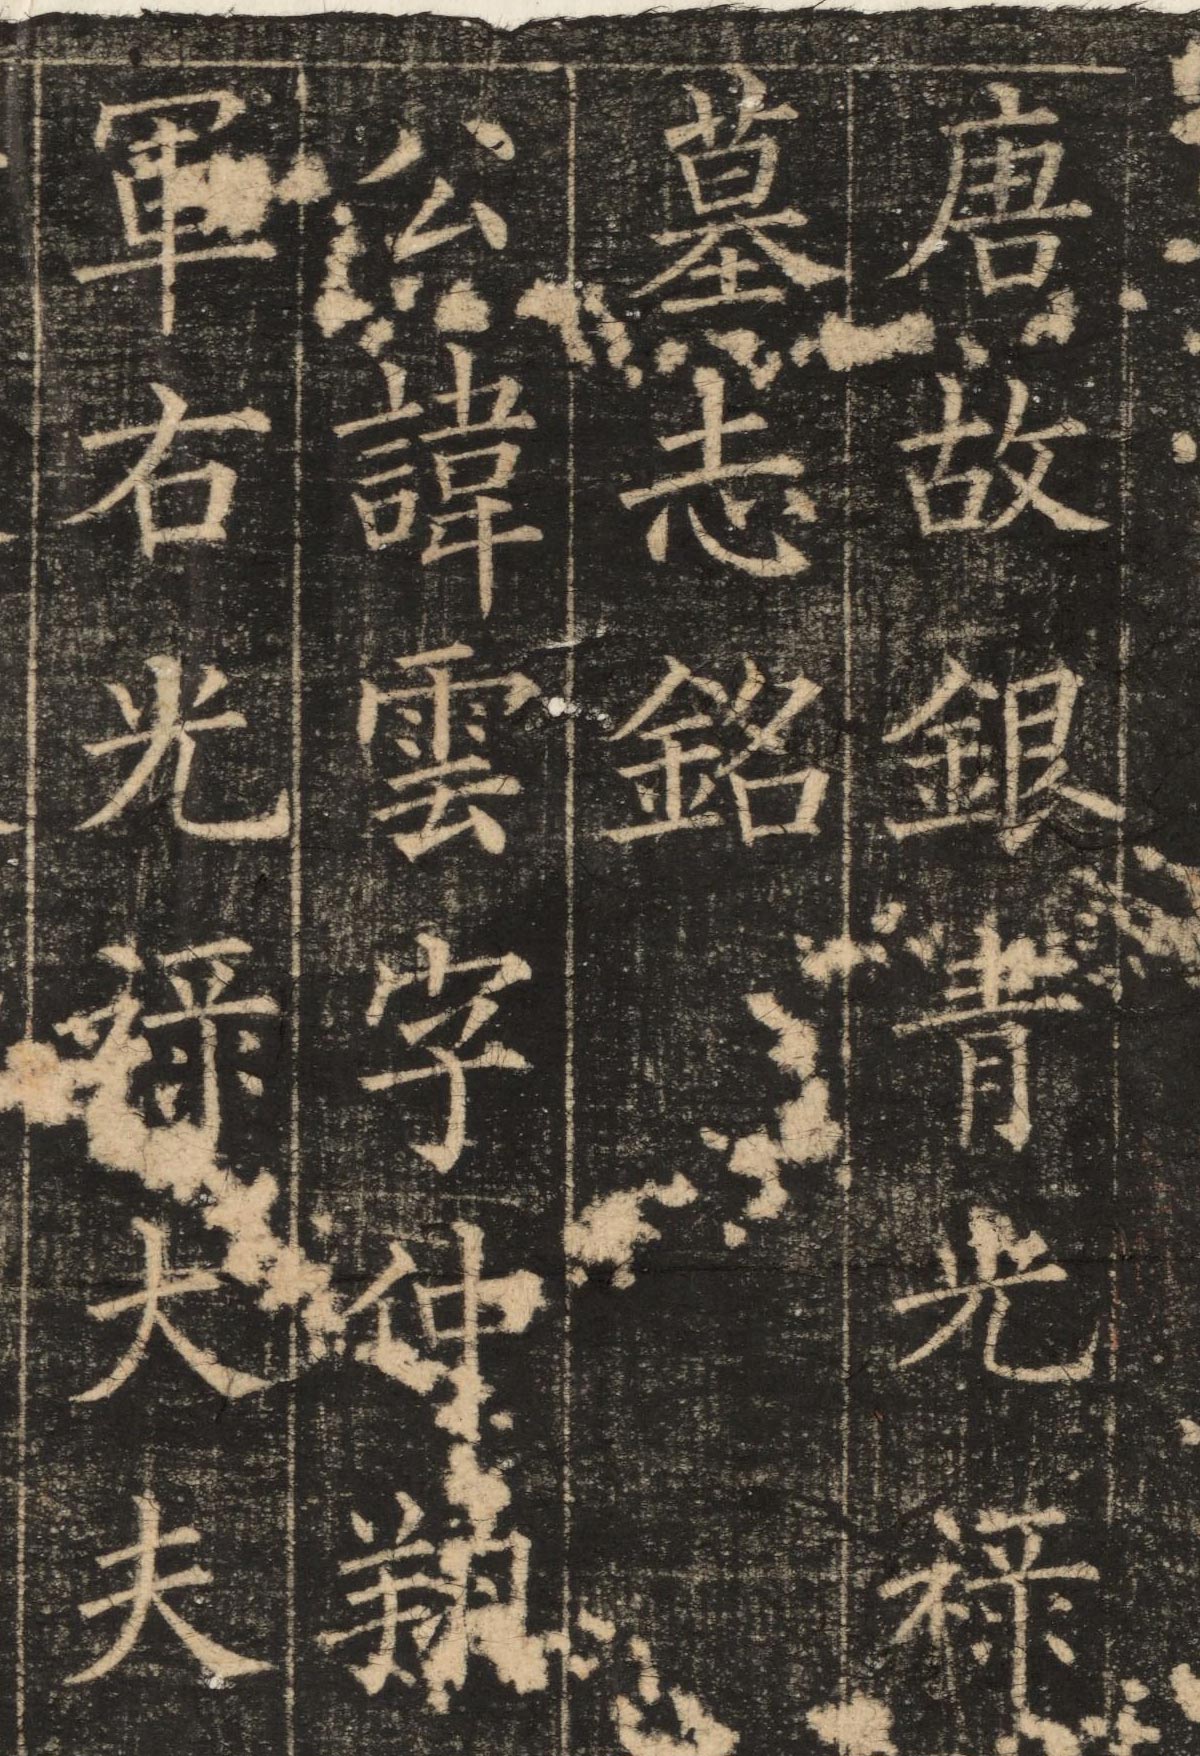 唐故銀青光祿
墓志銘
公諱雲字仲翔
軍右光祿大夫